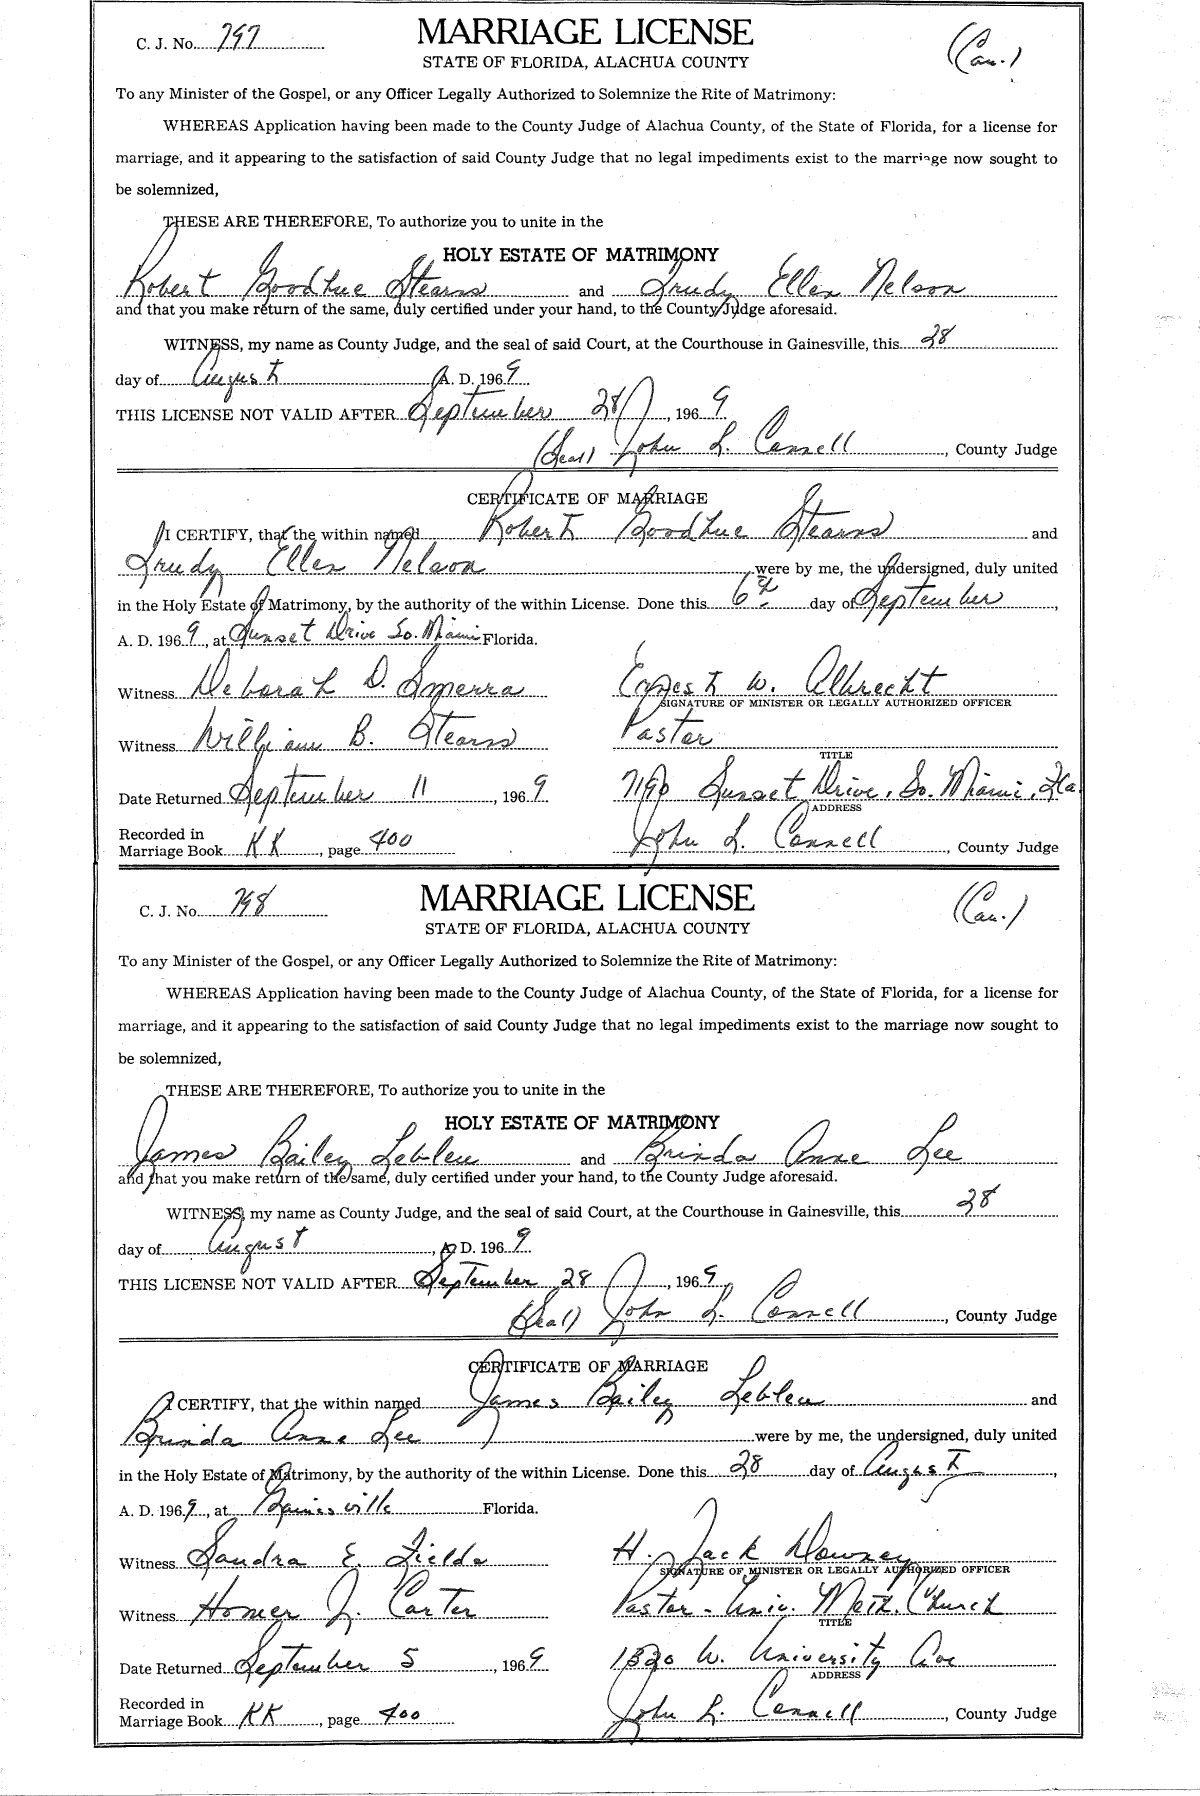 C. J. No. 797
MARRIAGE LICENSE
(Cau.)
STATE OF FLORIDA, ALACHUA COUNTY
To any Minister of the Gospel, or any Officer Legally Authorized to Solemnize the Rite of Matrimony:
WHEREAS Application having been made to the County Judge of Alachua County, of the State of Florida, for a license for
marriage, and it appearing to the satisfaction of said County Judge that no legal impediments exist to the marriage now sought to
be solemnized,
THESE ARE THEREFORE, To authorize you to unite in the
HOLY ESTATE OF MATRIMONY
Robert Goodhue Stearns and Trudy Ellen Nelson
and that you make return of the same, duly certified under your hand, to the County Judge aforesaid.
WITNESS, my name as County Judge, and the seal of said Court, at the Courthouse in Gainesville, this 28
day of August A. D. 1969
THIS LICENSE NOT VALID AFTER September 28, 1969
(Seal) John L. Connell, County Judge
CERTIFICATE OF MARRIAGE
I CERTIFY, that the within named Robert Goodhue Stearns and
Trudy Ellen Nelson were by me, the undersigned, duly united
in the Holy Estate of Matrimony, by the authority of the within License. Done this 6th day of September,
A. D. 1969, at Sunset Drive So. Miami Florida.
Witness Deborah D. Smerra Ernest W. Albrecht
SIGNATURE OF MINISTER OR LEGALLY AUTHORIZED OFFICER
Witness William B. Stearns Pastor
TITLE
Date Returned September 11, 1969 7190 Sunset Drive, So. Miami, Fla.
ADDRESS
Recorded in
Marriage Book KK, page 400 John L. Connell, County Judge
C. J. No. 798
MARRIAGE LICENSE
(Cau.)
STATE OF FLORIDA, ALACHUA COUNTY
To any Minister of the Gospel, or any Officer Legally Authorized to Solemnize the Rite of Matrimony:
WHEREAS Application having been made to the County Judge of Alachua County, of the State of Florida, for a license for
marriage, and it appearing to the satisfaction of said County Judge that no legal impediments exist to the marriage now sought to
be solemnized,
THESE ARE THEREFORE, To authorize you to unite in the
HOLY ESTATE OF MATRIMONY
James Bailey Lebleu and Brinda Anne Lee
and that you make return of the same, duly certified under your hand, to the County Judge aforesaid.
WITNESS, my name as County Judge, and the seal of said Court, at the Courthouse in Gainesville, this 28
day of August, A. D. 1969
THIS LICENSE NOT VALID AFTER September 28, 1969
(Seal) John L. Connell, County Judge
CERTIFICATE OF MARRIAGE
I CERTIFY, that the within named James Bailey Lebleu and
Brinda Anne Lee were by me, the undersigned, duly united
in the Holy Estate of Matrimony, by the authority of the within License. Done this 28 day of August,
A. D. 1969, at Gainesville Florida.
Witness Sandra E. Fields H. Jack Downey
SIGNATURE OF MINISTER OR LEGALLY AUTHORIZED OFFICER
Witness Homer J. Carter Pastor - Univ. Meth. Church
TITLE
Date Returned September 5, 1969 1320 W. University Ave
ADDRESS
Recorded in
Marriage Book KK, page 400 John L. Connell, County Judge